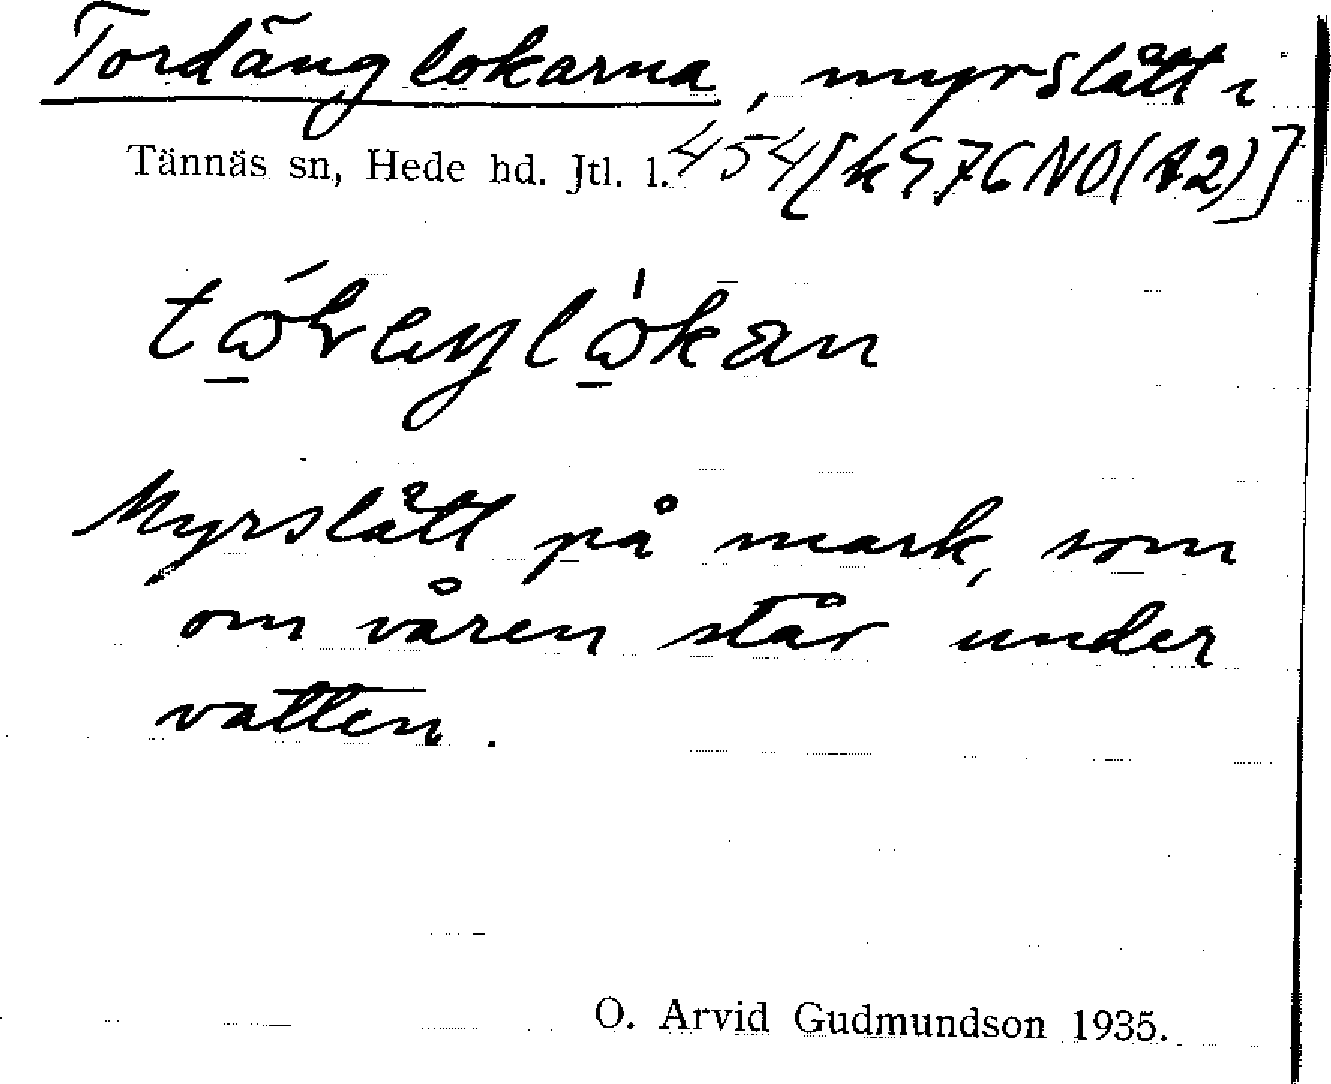 Tordänglokarna, myrslått i
Tännäs sn, Hede hd. Jtl. l. 454 [k976NO(A2)]
Myrslått på mark, som
om våren står under
vatten.
O. Arvid Gudmundson 1935.